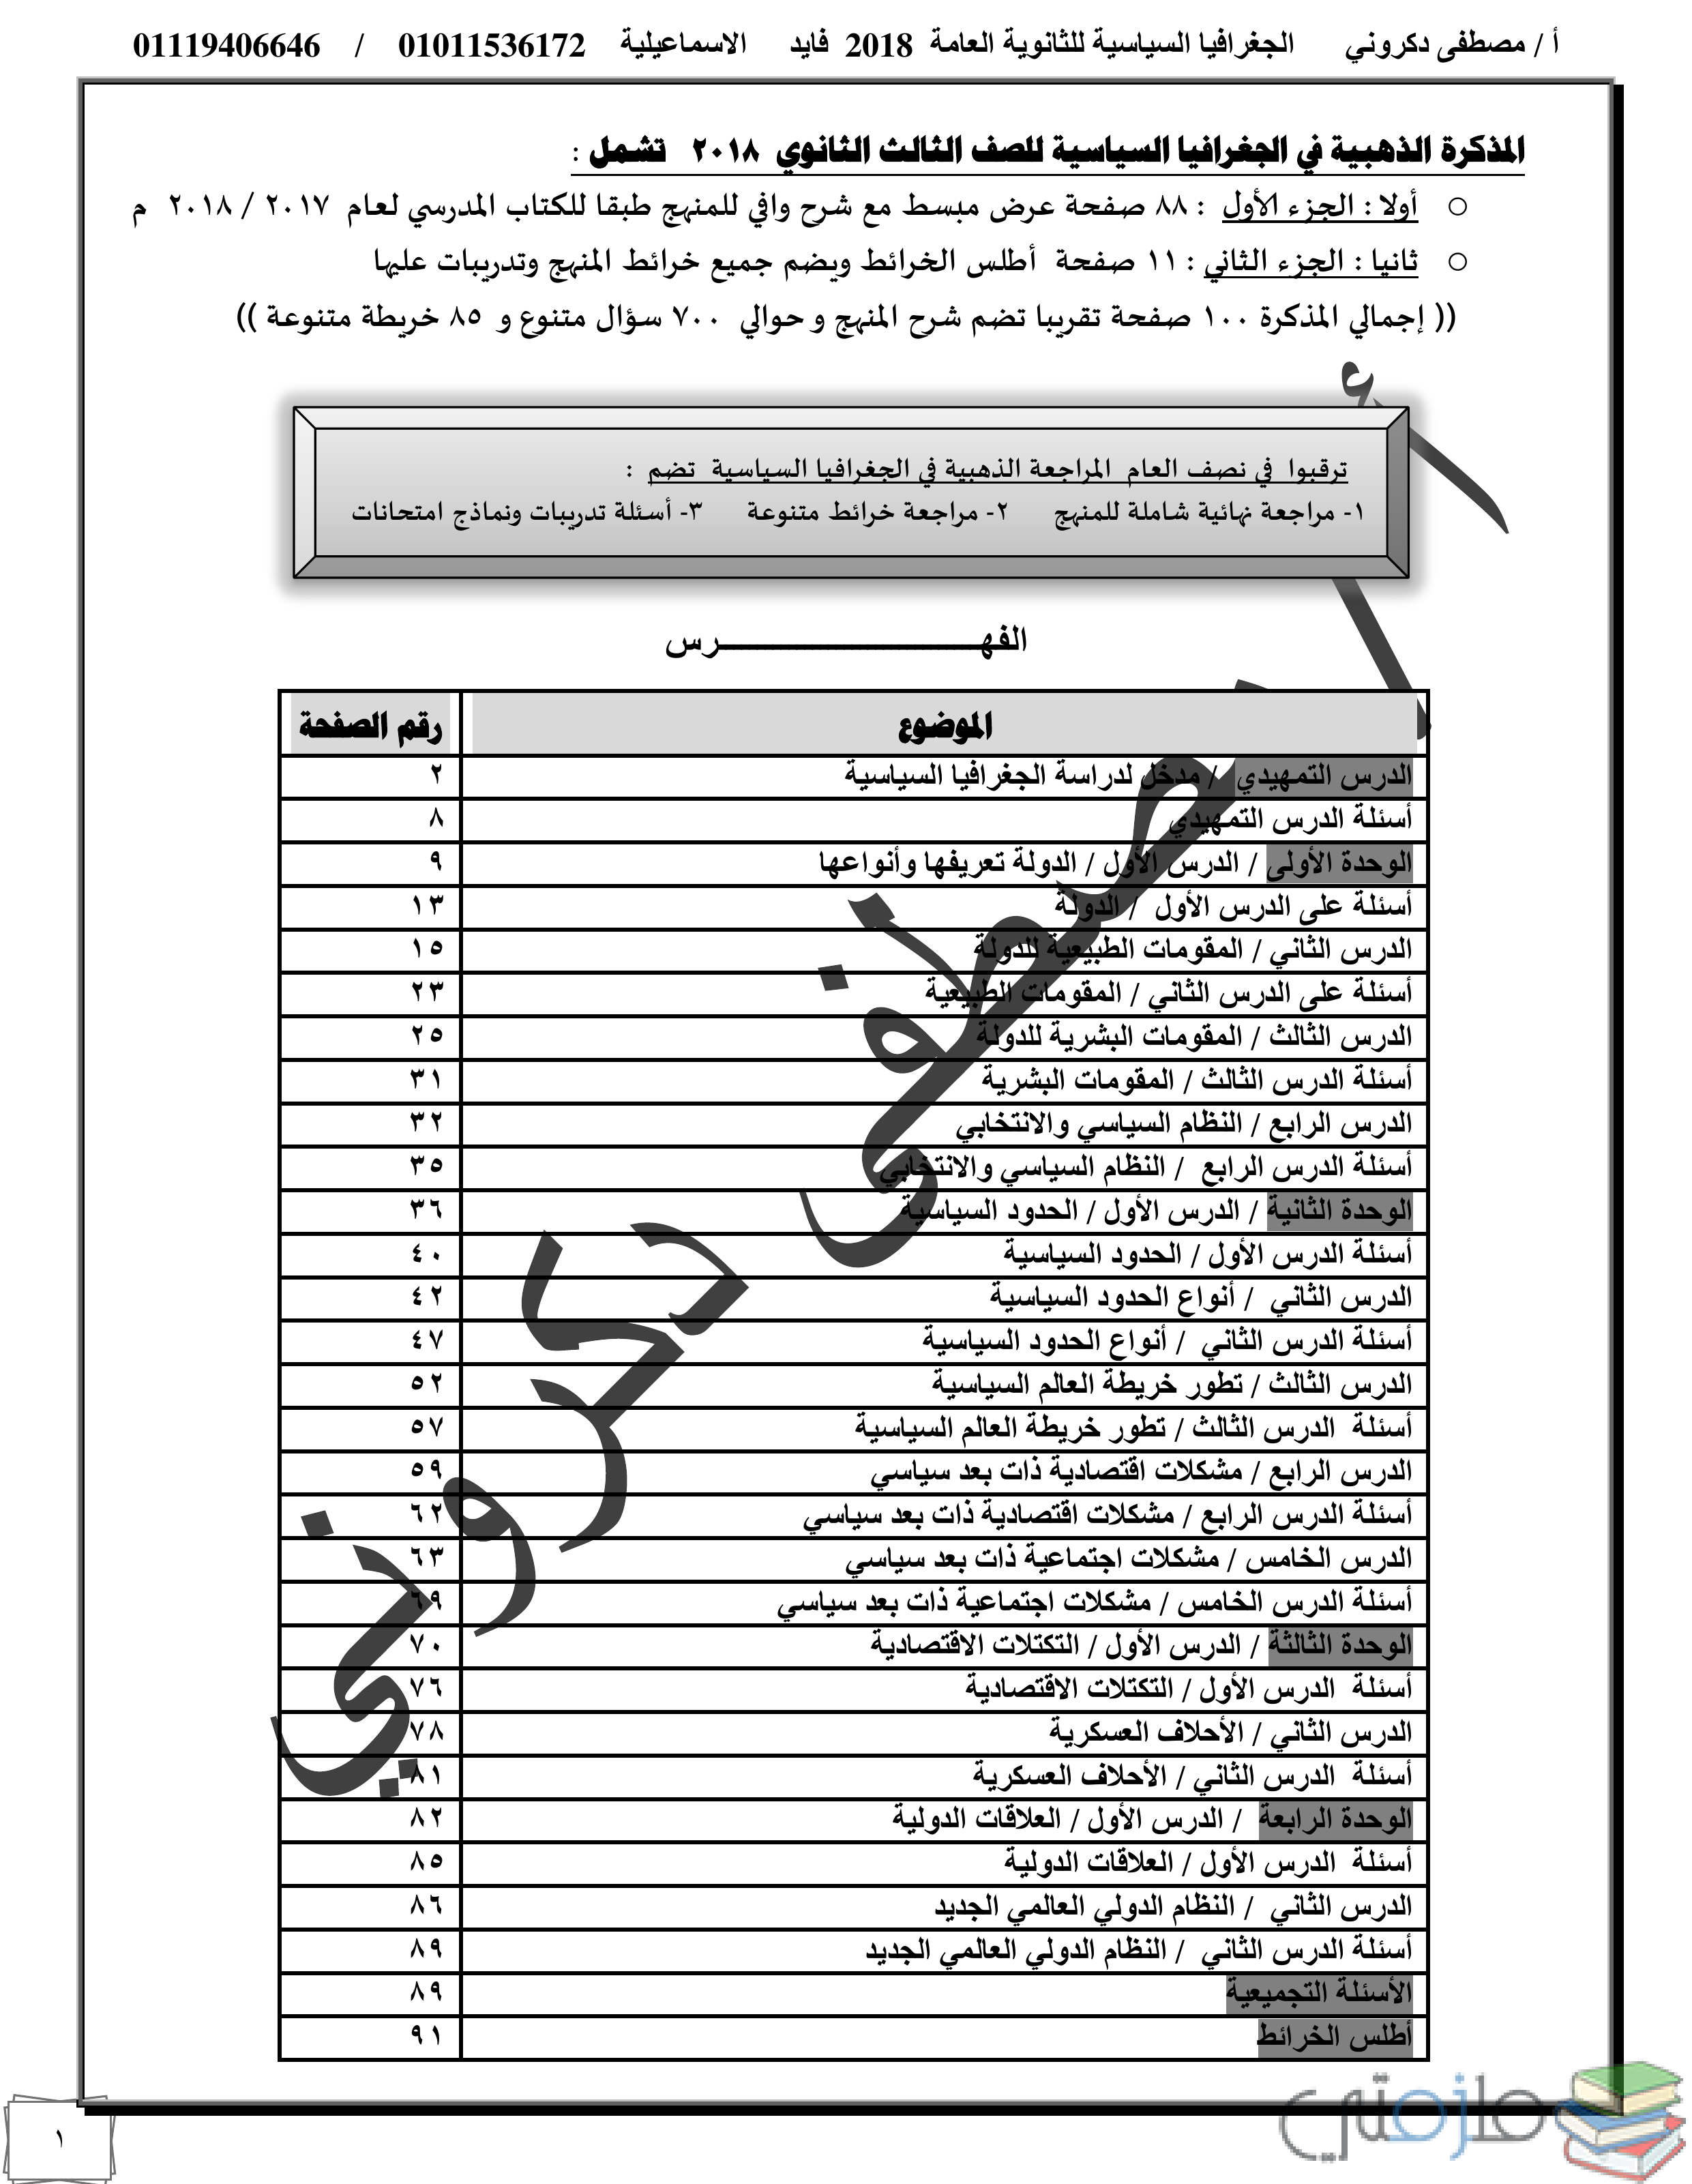 أ / مصطفى دكروني الجغرافيا السياسية للثانوية العامة 2018 فايد الاسماعيلية 01011536172 / 01119406646
المذكرة الذهبية في الجغرافيا السياسية للصف الثالث الثانوي ٢٠١٨ تشمل :
○ أولا : الجزء الأول : ٨٨ صفحة عرض مبسط مع شرح وافي للمنهج طبقا للكتاب المدرسي لعام ٢٠١٧ / ٢٠١٨ م
○ ثانيا : الجزء الثاني : ١١ صفحة أطلس الخرائط ويضم جميع خرائط المنهج وتدريبات عليها
(( إجمالي المذكرة ١٠٠ صفحة تقريبا تضم شرح المنهج و حوالي ٧٠٠ سؤال متنوع و ٨٥ خريطة متنوعة ))
ترقبوا في نصف العام المراجعة الذهبية في الجغرافيا السياسية تضم :
١- مراجعة نهائية شاملة للمنهج ٢- مراجعة خرائط متنوعة ٣- أسئلة تدريبات ونماذج امتحانات
الفهـــــــــــــــــرس
الموضوع رقم الصفحة
الدرس التمهيدي / مدخل لدراسة الجغرافيا السياسية ٢
أسئلة الدرس التمهيدي ٨
الوحدة الأولى / الدرس الأول / الدولة تعريفها وأنواعها ٩
أسئلة على الدرس الأول / الدولة ١٣
الدرس الثاني / المقومات الطبيعية للدولة ١٥
أسئلة على الدرس الثاني / المقومات الطبيعية ٢٣
الدرس الثالث / المقومات البشرية للدولة ٢٥
أسئلة الدرس الثالث / المقومات البشرية ٣١
الدرس الرابع / النظام السياسي والانتخابي ٣٢
أسئلة الدرس الرابع / النظام السياسي والانتخابي ٣٥
الوحدة الثانية / الدرس الأول / الحدود السياسية ٣٦
أسئلة الدرس الأول / الحدود السياسية ٤٠
الدرس الثاني / أنواع الحدود السياسية ٤٢
أسئلة الدرس الثاني / أنواع الحدود السياسية ٤٧
الدرس الثالث / تطور خريطة العالم السياسية ٥٢
أسئلة الدرس الثالث / تطور خريطة العالم السياسية ٥٧
الدرس الرابع / مشكلات اقتصادية ذات بعد سياسي ٥٩
أسئلة الدرس الرابع / مشكلات اقتصادية ذات بعد سياسي ٦٢
الدرس الخامس / مشكلات اجتماعية ذات بعد سياسي ٦٣
أسئلة الدرس الخامس / مشكلات اجتماعية ذات بعد سياسي ٦٩
الوحدة الثالثة / الدرس الأول / التكتلات الاقتصادية ٧٠
أسئلة الدرس الأول / التكتلات الاقتصادية ٧٦
الدرس الثاني / الأحلاف العسكرية ٧٨
أسئلة الدرس الثاني / الأحلاف العسكرية ٨١
الوحدة الرابعة / الدرس الأول / العلاقات الدولية ٨٢
أسئلة الدرس الأول / العلاقات الدولية ٨٥
الدرس الثاني / النظام الدولي العالمي الجديد ٨٦
أسئلة الدرس الثاني / النظام الدولي العالمي الجديد ٨٩
الأسئلة التجميعية ٨٩
أطلس الخرائط ٩١
أ / مصطفى دكروني
ملزمتي
١